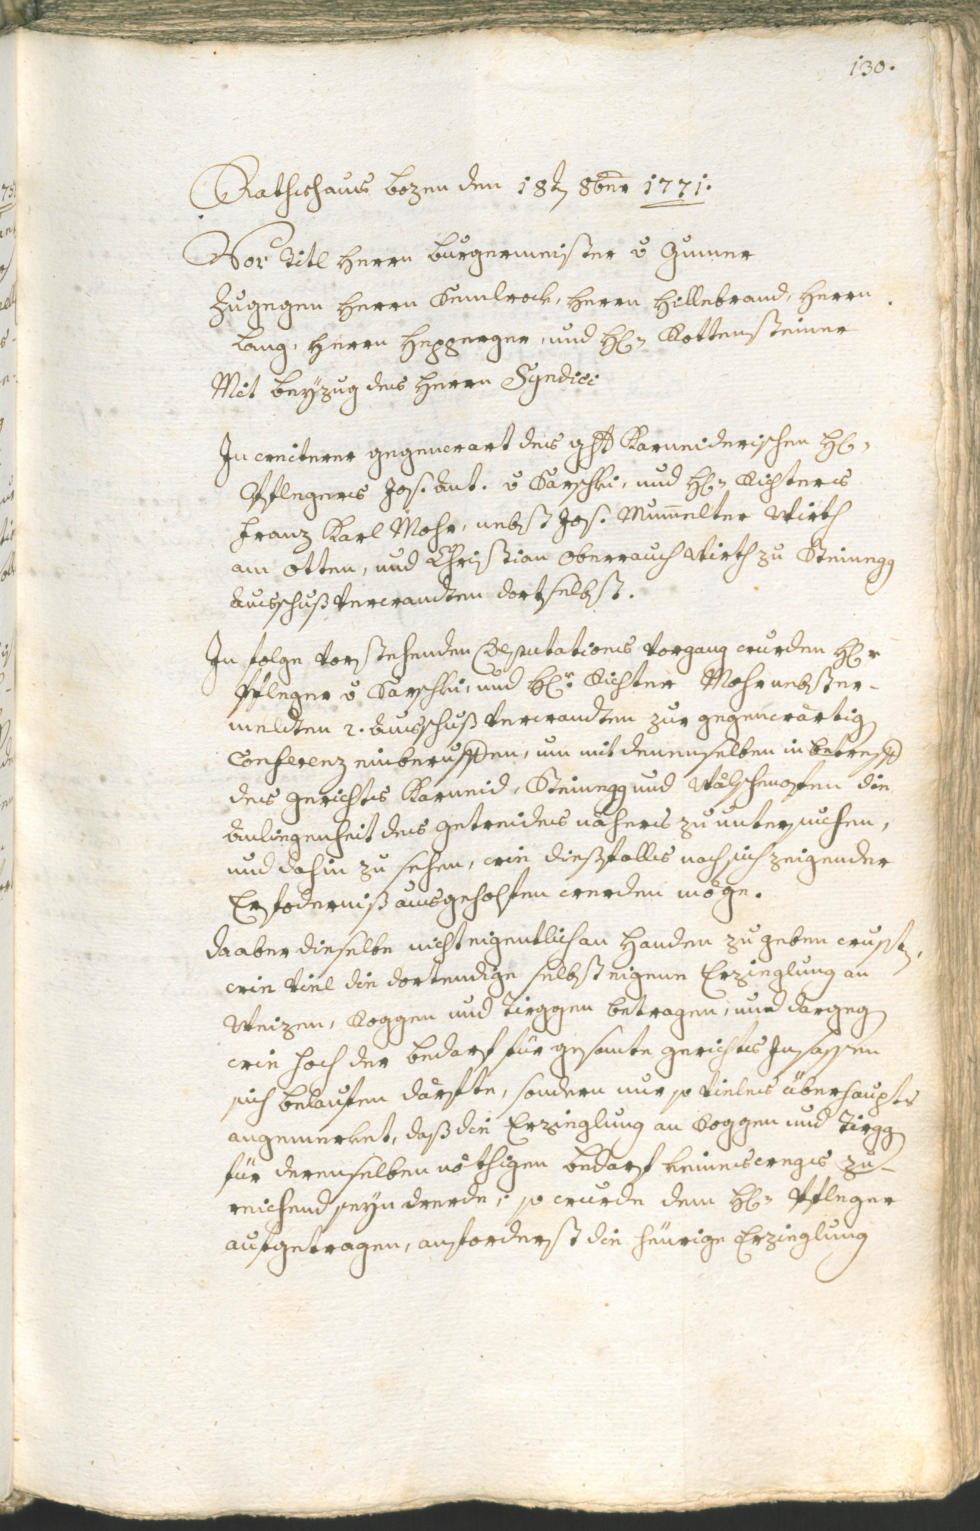 130.
Rathshaus bozen den 18t 8ber 1771.
Vor Titl herrn burgermeister v Gumer
Zugegen herrn Semlrock, herrn hillebrand, herrn
lang, herrn hepperger, und H: Rottensteiner
Mit beÿzug des herrn Syndici
In weiterer gegenwart des gst Karneiderischen H:
Pflegers Jos. Ant. v , und H: Richters
Franz Karl Mohr, nebst Jos. Mumelter Wirth
am Otten, und Christian oberrauch Wirth zu Steinegg
Ausschuß Verwandten dortselbst.
In folge vorstehenden Deputations Vorgang wurden H:r
Pfleger v , und H:r Richter Mohr nebst er-
meldten 2. Ausschuß Verwandten zur gegenwärtig
Conferenz einberuffen, um mit denenselben in betreff
des gerichts Karneid, Steinegg und Wälschenofen die
Anliegenheit des getreides nähers zu untersuchen,
und dahin zu sehen, wie diesfalls nach sich zeigender
Erfoderniß ausgeholfen werden möge.
Da aber dieselbe nicht eigentlich an Handen zu geben wust,
wie viel die dortendige selbst eigene Erzieglung an
Weizen, Roggen und Tirggen betragen, und dargeg
wie hoch der bedarf für gesamte gerichts Insassen
sich belaufen därfte, sondern nur so vieles überhaupts
angemerket, daß die Erzieglung an Roggen und Tirgg
für derenselben nöthigen bedarf keineswegs zu-
reichend seyn werde; so wurde dem H: Pfleger
aufgetragen, anforderst die heurige Erzieglung